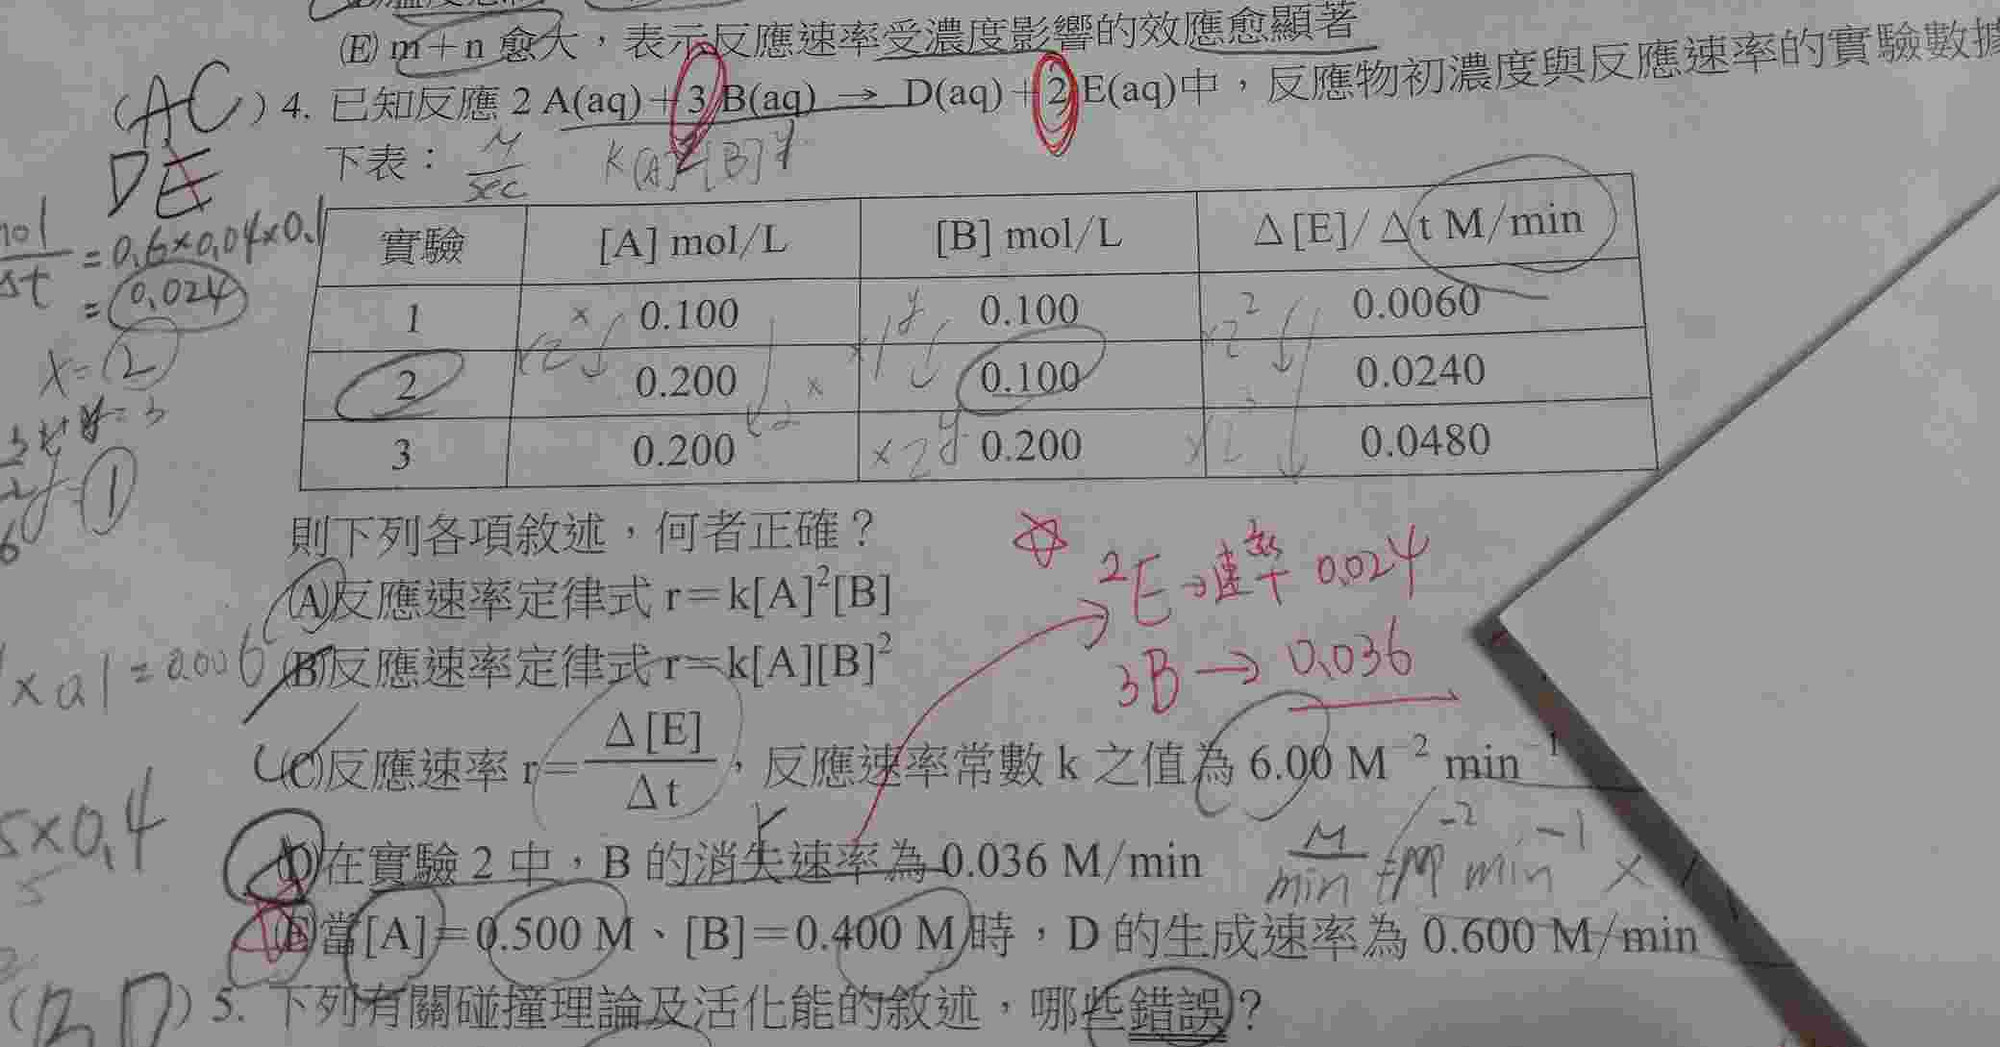 (E) m+n 愈大，表示反應速率受濃度影響的效應愈顯著
(AC) 4. 已知反應 2 A(aq)+3 B(aq) → D(aq)+2 E(aq)中，反應物初濃度與反應速率的實驗數據
DE
下表：
M/sec K[A]ˣ[B]ʸ
實驗 [A] mol/L [B] mol/L Δ[E]/Δt M/min
1 0.100 0.100 0.0060
2 0.200 0.100 0.0240
3 0.200 0.200 0.0480
=0.6×0.04×0.1
=0.024
x=2
則下列各項敘述，何者正確？
(A)反應速率定律式 r=k[A]²[B]
(B)反應速率定律式 r=k[A][B]²
2E→速率 0.024
3B→0.036
(C)反應速率 r=Δ[E]/Δt，反應速率常數 k 之值為 6.00 M⁻² min⁻¹
(D)在實驗 2 中，B 的消失速率為 0.036 M/min
(E)當[A]=0.500 M、[B]=0.400 M 時，D 的生成速率為 0.600 M/min
(BD) 5. 下列有關碰撞理論及活化能的敘述，哪些錯誤？